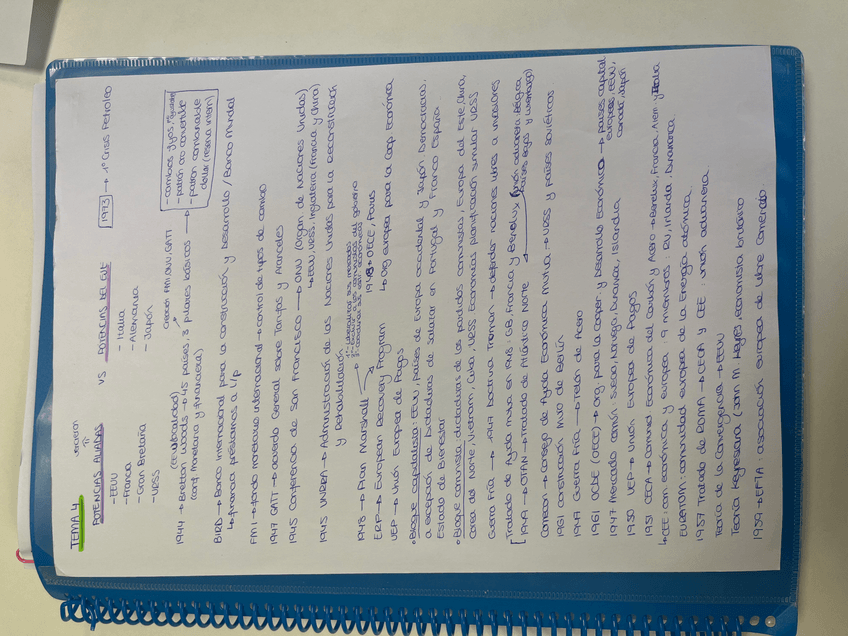 TEMA 4
vencieron
POTENCIAS ALIADAS VS POTENCIAS DEL EJE 1973 → 1ª Crisis Petroleo
- EEUU - Italia
- Francia - Alemania
- Gran Bretaña - Japón
- URSS
Creación FMI, GATT
- patrón oro convertible
- patrón
dollar (reserva intern)
1944 → Bretton Woods → 45 países, 3 pilares básicos →
(conf. Monetaria y financiera)
BIRD → Banco internacional para la construcción y Desarrollo / Banco Mundial
↳ financia préstamos a L/p
FMI → fondo monetario internacional → control de tipos de cambio
1947 GATT → acuerdo General sobre Tarifas y Aranceles
1945 Conferencia de San Francisco → ONU (Organ. de Naciones Unidas)
↳ EEUU, URSS, Inglaterra (Francia y China)
1945 UNRRA → Administración de las Naciones Unidas para la reconstrucción
y Rehabilitación
1948 → Plan Marshall
ERP → European Recovery Program 1948 → OECE, París
↳ Org europea para la Coop. Económica
UEP → Unión Europea de Pagos
• Bloque capitalista: EEUU, países de Europa occidental y Japón Democracias,
a excepción de dictaduras de Salazar en Portugal y Franco España.
Estado de Bienestar
• Bloque comunista: dictaduras de los partidos comunistas, Europa del Este, China,
Corea del Norte, Vietnam, Cuba, URSS Economías planificación similar URSS
Guerra Fría → 1947 Doctrina Truman → defender naciones libres a invasiones
Tratado de Ayuda mutua en RMS: GB, Francia y Benelux (unión aduanera Bélgica
países Bajos y Luxemburgo)
1949 → OTAN → Tratado de Atlántico Norte
Comecon → Consejo de Ayuda Económica mutua → URSS y países soviéticos
1961 construcción Muro de Berlín
1947 Guerra Fría → Telón de Acero
1961 OCDE (OECE) → Org. para la Cooper. y Desarrollo Económico → países capital.
europeos, EEUU,
Canadá, Japón
1947 Mercado común: Suecia, Noruega, Dinamarca, Islandia
1950 UEP → Unión Europea de Pagos
1951 CECA → Comunid Económica del Carbón y Acero → Benelux, Francia, Alem y Italia
↳ CEE: com. económica y europea: 9 miembros: RU, Irlanda, Dinamarca
EURATOM: comunidad europea de la Energía atómica
1957 Tratado de ROMA → CECA y CEE: unión aduanera
Teoría de la Convergencia → EEUU
Teoría Keynesiana (John M. Keynes, economista británico
1959 → EFTA: asociación europea de libre comercio